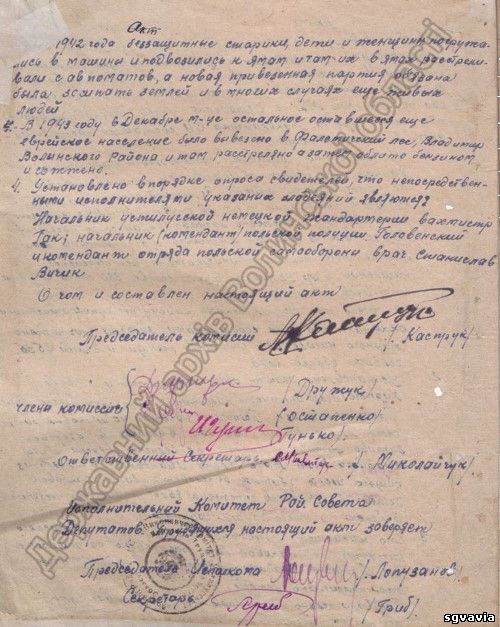 Акт
1942 года беззащитные старики, дети и женщины погружа-
лись в машины и подвозились к ямам и там их в ямах расстрели-
вали с автоматов, а новая привезенная партия обязана
была засыпать землей и в многих случаях еще живых
людей
3. В 1943 году в Декабре м-це остальное оставшееся еще
еврейское население было вывезено в Фалемический лес, Владимир
Волынского Района и там расстреляно а затем облито бензином
и сожжено.
4. Установлено в порядке опроса свидетелей, что непосредствен-
ными исполнителями указаных злодеяний являются:
Начальник устилугской немецкой жандартерии вахмистр
Гак; начальник (комендант) польской полиции Головенский
и комендант отряда польской самооборони врач Станислав
Вичик
О чем и составлен настоящий акт
Председатель комисии /. Каспрук/
члена комиссии /Дружук/
/Остапенко/
/Гунько/.
Ответственний Секретарь /. Миколайчук/
Исполнительной Комитет Рай. Совета
Депутатов Трудящихся настоящий акт заверяет
Председатель Исполкома /Лопузанов/
Секретарь /Гриб/
Державний архів Волинської області
sgvavia